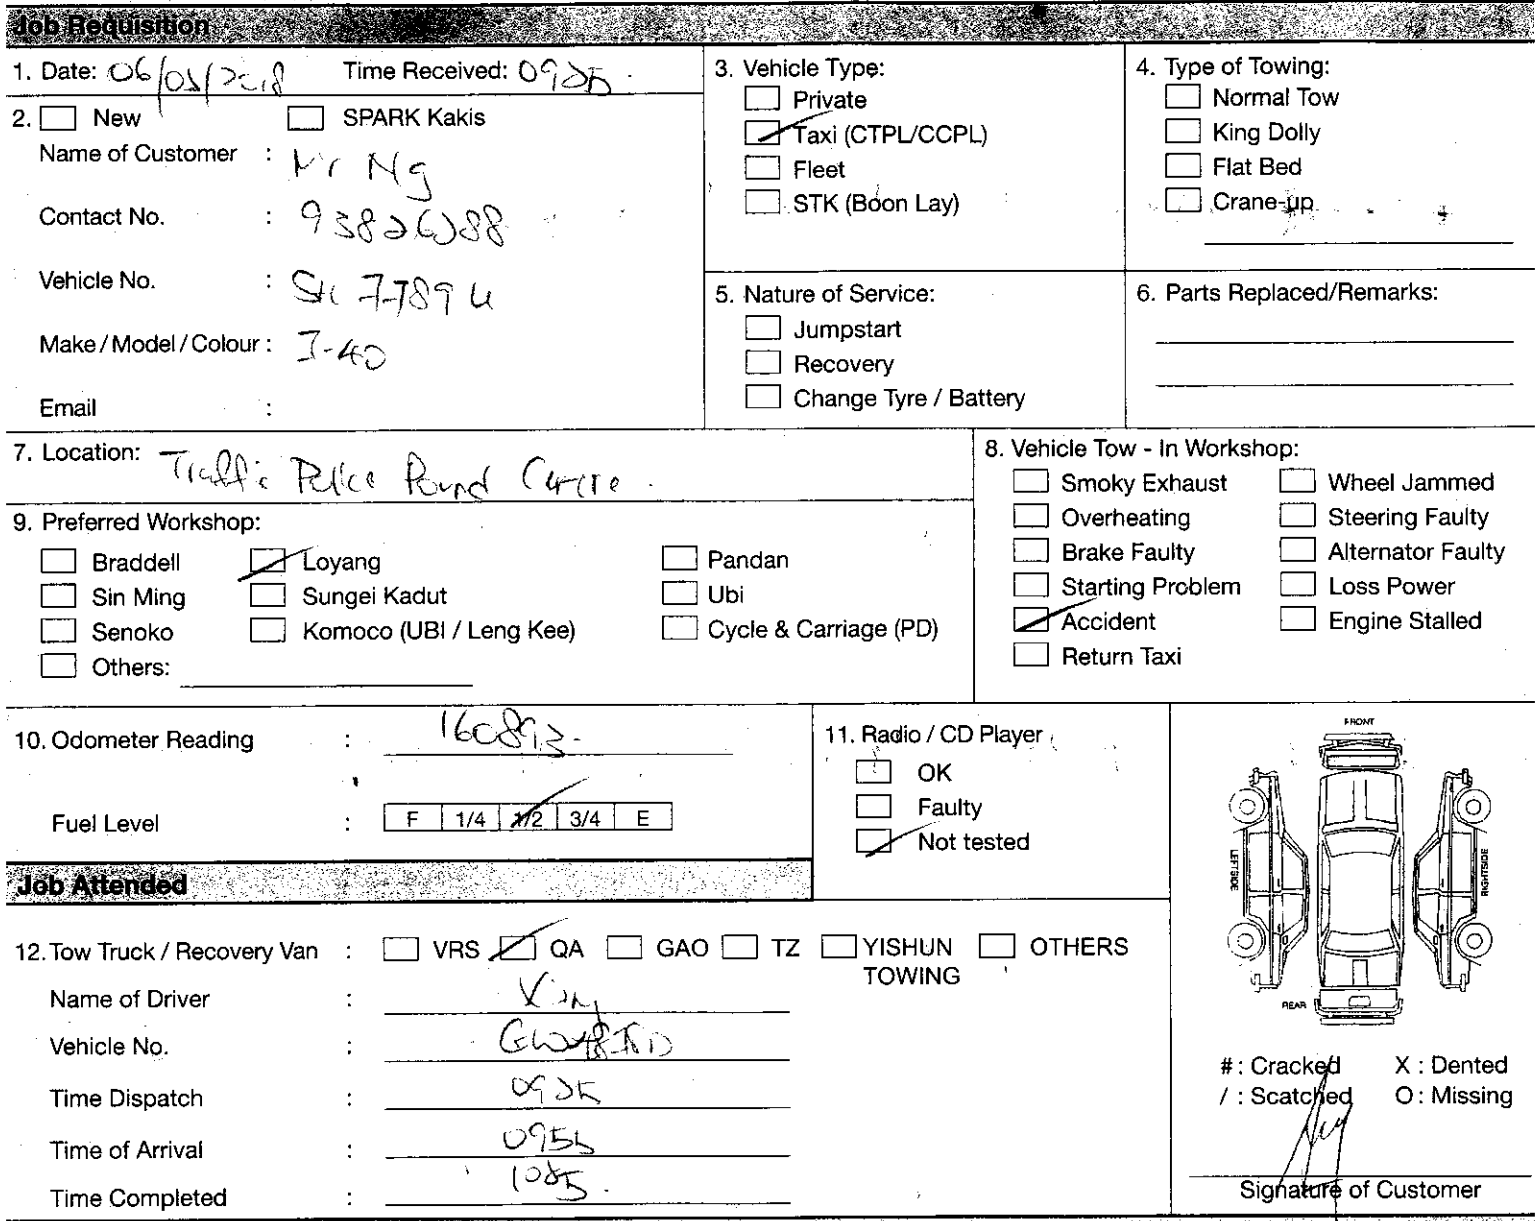 Job Requisition
1. Date: 06/03/2018 Time Received: 0925
2. New SPARK Kakis
Name of Customer : Mr Ng
Contact No. : 93826288
Vehicle No. : 7789
Make / Model / Colour : I-40
Email :
3. Vehicle Type:
Private
Taxi (CTPL/CCPL)
Fleet
STK (Boon Lay)
4. Type of Towing:
Normal Tow
King Dolly
Flat Bed
Crane-up
5. Nature of Service:
Jumpstart
Recovery
Change Tyre / Battery
6. Parts Replaced/Remarks:
7. Location: Traffic Police Pound Centre.
8. Vehicle Tow - In Workshop:
Smoky Exhaust Wheel Jammed
Overheating Steering Faulty
Brake Faulty Alternator Faulty
Starting Problem Loss Power
Accident Engine Stalled
Return Taxi
9. Preferred Workshop:
Braddell Loyang Pandan
Sin Ming Sungei Kadut Ubi
Senoko Komoco (UBI / Leng Kee) Cycle & Carriage (PD)
Others:
10. Odometer Reading : 160893.
Fuel Level : F 1/4 1/2 3/4 E
11. Radio / CD Player
OK
Faulty
Not tested
FRONT
LEFT SIDE
RIGHT SIDE
REAR
#: Cracked X : Dented
/ : Scatched O : Missing
Signature of Customer
Job Attended
12. Tow Truck / Recovery Van : VRS QA GAO TZ YISHUN TOWING OTHERS
Name of Driver :
Vehicle No. :
Time Dispatch : 0925
Time of Arrival : 0955
Time Completed :